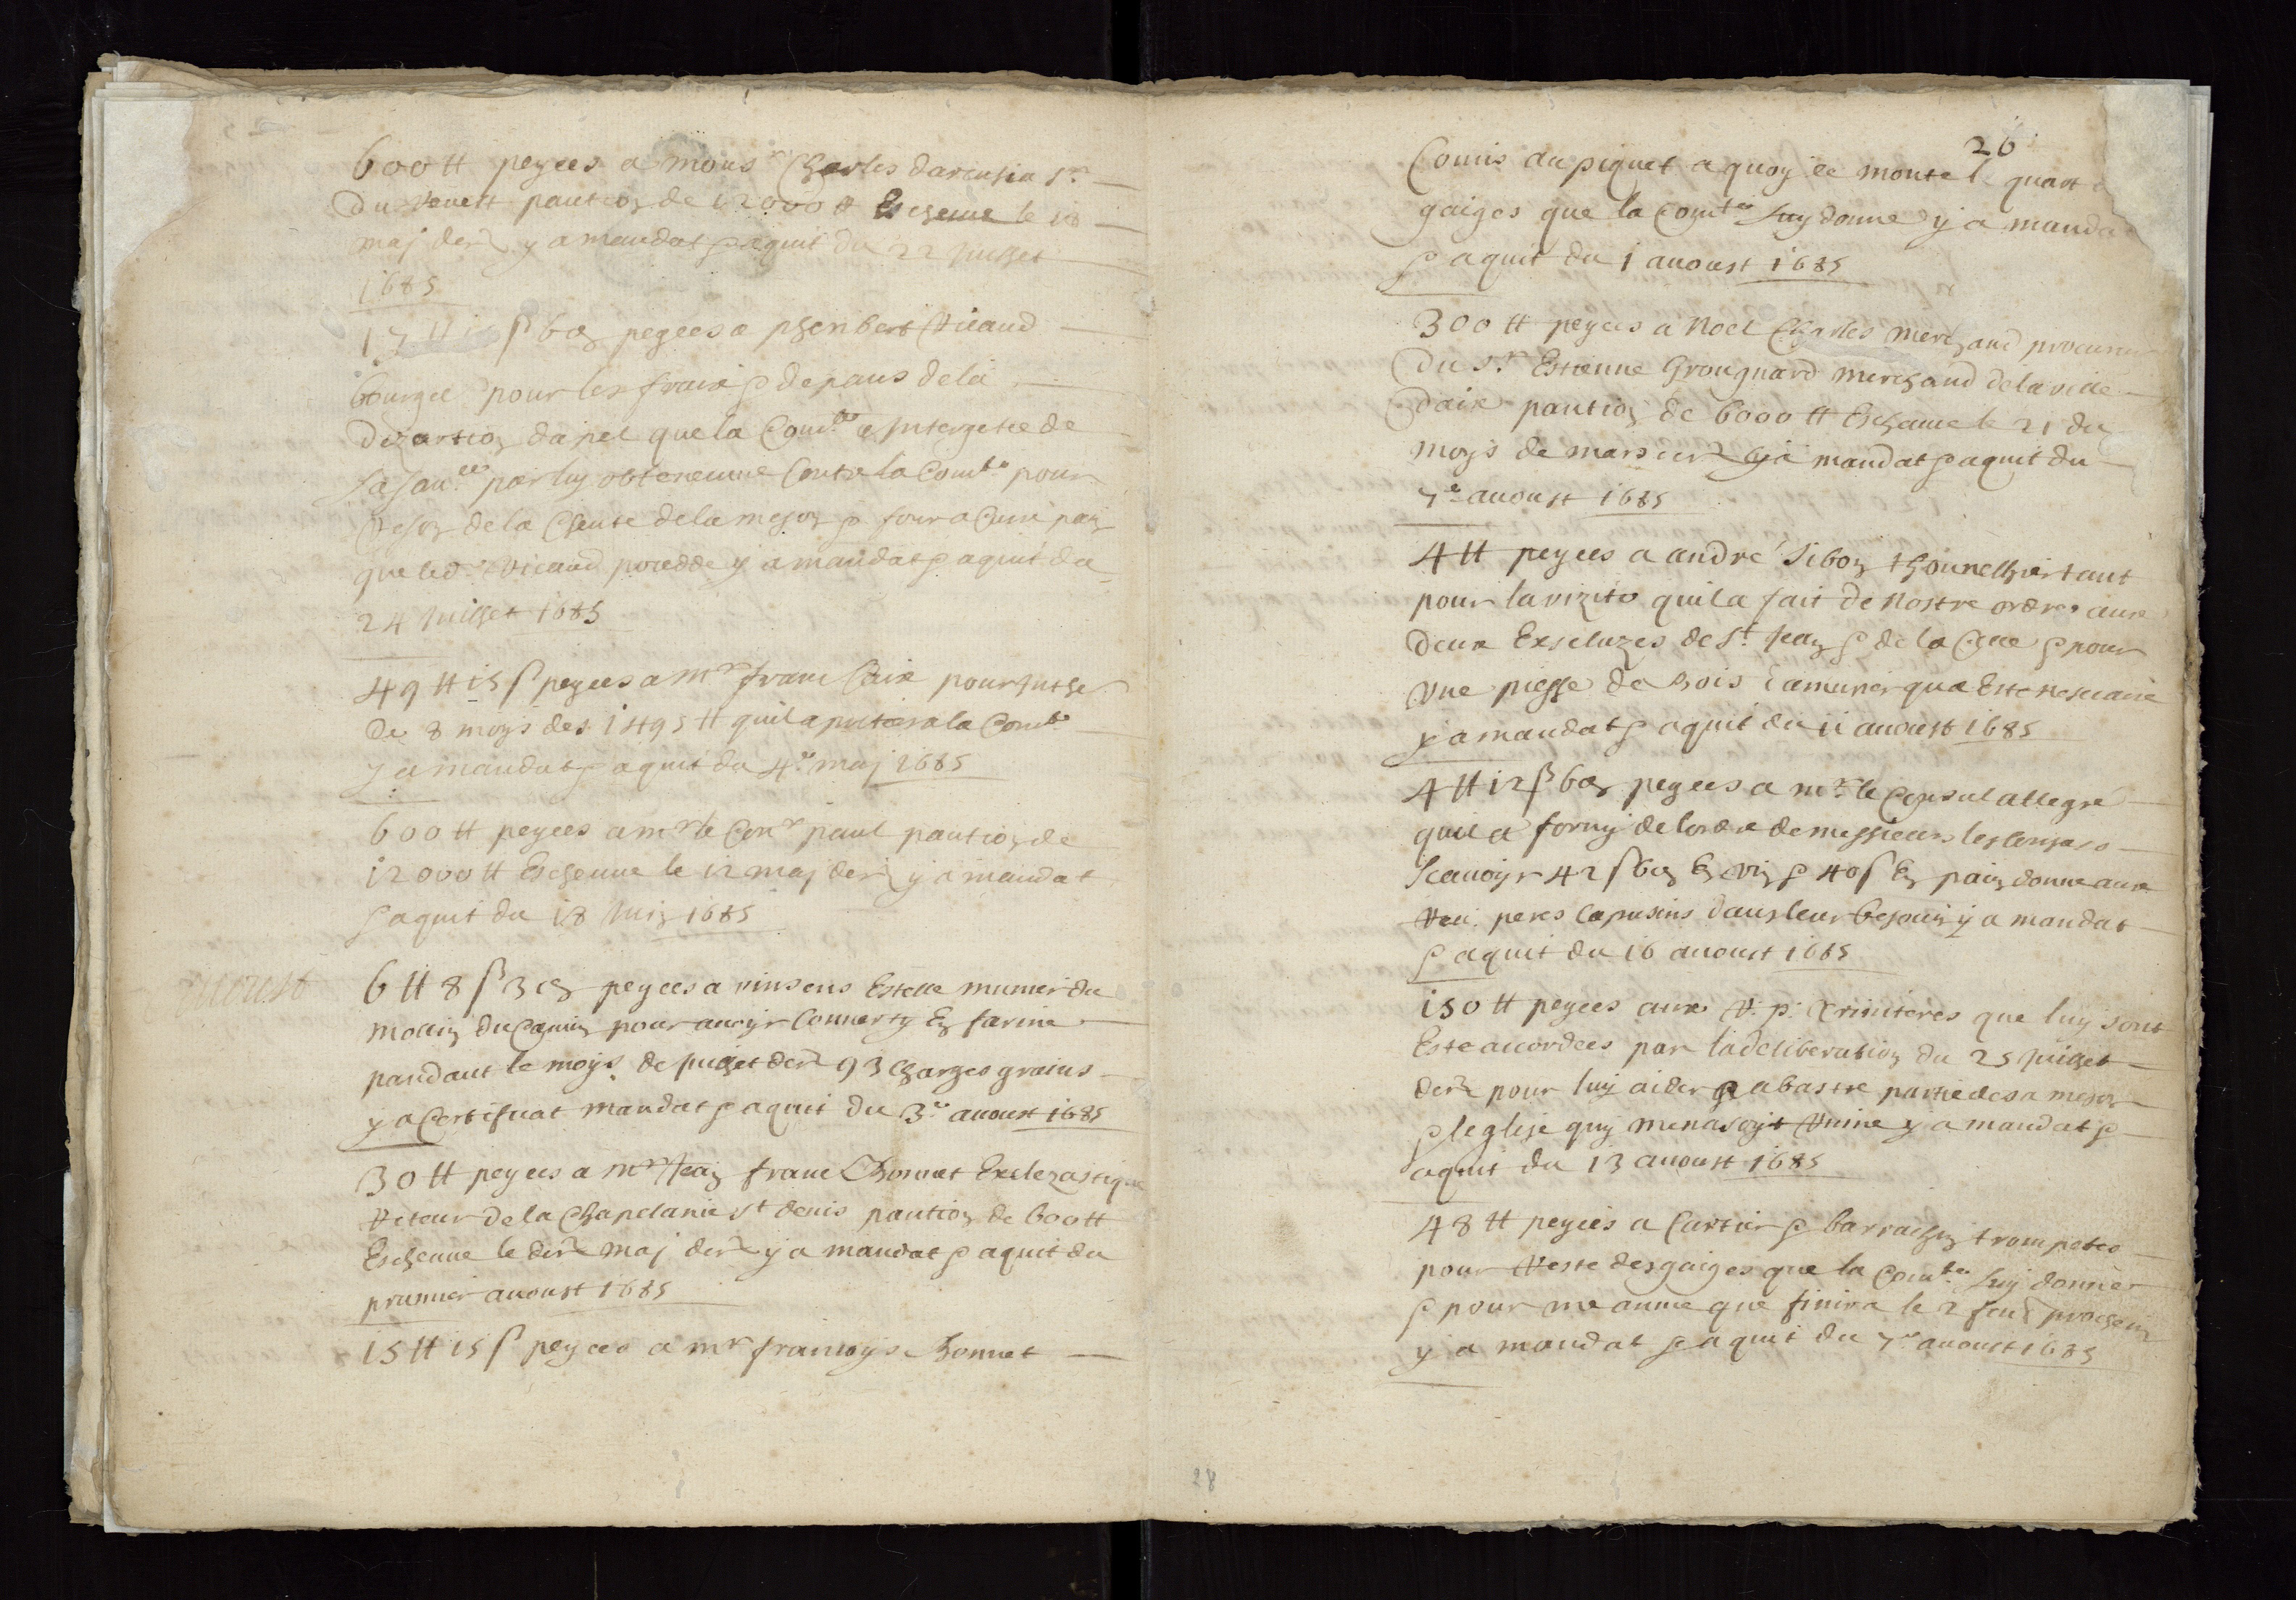 600 ₶ peyees a mons.r Charles darcusia s.r
du Reuest pantion de 12000 ₶ Escheue le 18
maj der y a mandat & aquit du 22 Juillet
1685
17 ₶ ſ 6 peyees a phenbert Vicaud
bourgel pour les fraix & depans de la
dizartion dapel que la Com.te a Intergetee de
la san.ce par luy obteneuue Contre la Com.te pour
Reson de la Cheute dela meson & four a Cuire pain
que led. Vicaud poucdde y a mandat & aquit du
24 Juillet 1685
49 ₶ 15 ſ peyees a m.r franc Caix pour Juthe
de 8 moys des 1495 ₶ quil a la Com.te
y a mandat & aquit du 4.e maj 1685
600 ₶ peyees a m.r le Con.r paul pantion de
12000 ₶ Escheuue le 12 maj der y a mandat
& aquit du 18 Juin 1685
auoust
6 ₶ 8 ſ 3 peyees a vinsens Estelle munier du
molin du Camin pour auoyr Conuerty En farine
pandant le moys de Juilet der 93 Charges grains
y a Certifuat mandat & aquit du 3.e auoust 1685
30 ₶ peyees a m.r Jean franc Bonnet Exclezastique
Reteur de la Chapelanie s.t denis pantion de 600 ₶
Escheuue le der maj der y a mandat & aquit du
prumier auoust 1685
15 ₶ 15 ſ peyees a m.r francoys Bonnet
26
Comis au piquet a quoy ce monte l quart
gaiges que la Com.te luy donne y a manda
& aquit du 1 auoust 1685
300 ₶ peyees a Noel Charles merchand procureur
du s.r Estienne Grougnard merchand de la ville
daix pantion de 6000 ₶ Escheue le 21 du
moys de mars der y a mandat & aquit du
7.e auoust 1685
4 ₶ peyees a andré Sibon thounellier tant
pour la vizite quil a fait de Nostre ordre aux
deux Exscluzes de s.t Jean & de la Crue & pour
vne piesse de bois damurier qua Este nesecaire
y a mandat & aquit du 11 auoust 1685
4 ₶ 12 ſ 6 peyees a m.r le Consul allegre
quil a forny de lordre de messieurs les Consuls
scauoyr 42 ſ 6 En vin & 40 ſ En pain donne aux
Reu. peres Capusins dans leur besouin y a mandat
& aquit du 16 auoust 1685
150 ₶ peyees aux R. p. trinitères que luy sont
Este accordees par la deliberation du 25 Juillet
der pour luy aider a abastre partie de sa meson
& leglise quy menasoyt Ruine y a mandat &
aquit du 13 auoust 1685
48 ₶ peyees a Cartier & barrachin trompetes
pour Reste des gaiges que la Com.te luy donner
& pour vne annee que finira le 2 feu prochein
y a mandat & aquit du 7.e auoust 1685
28